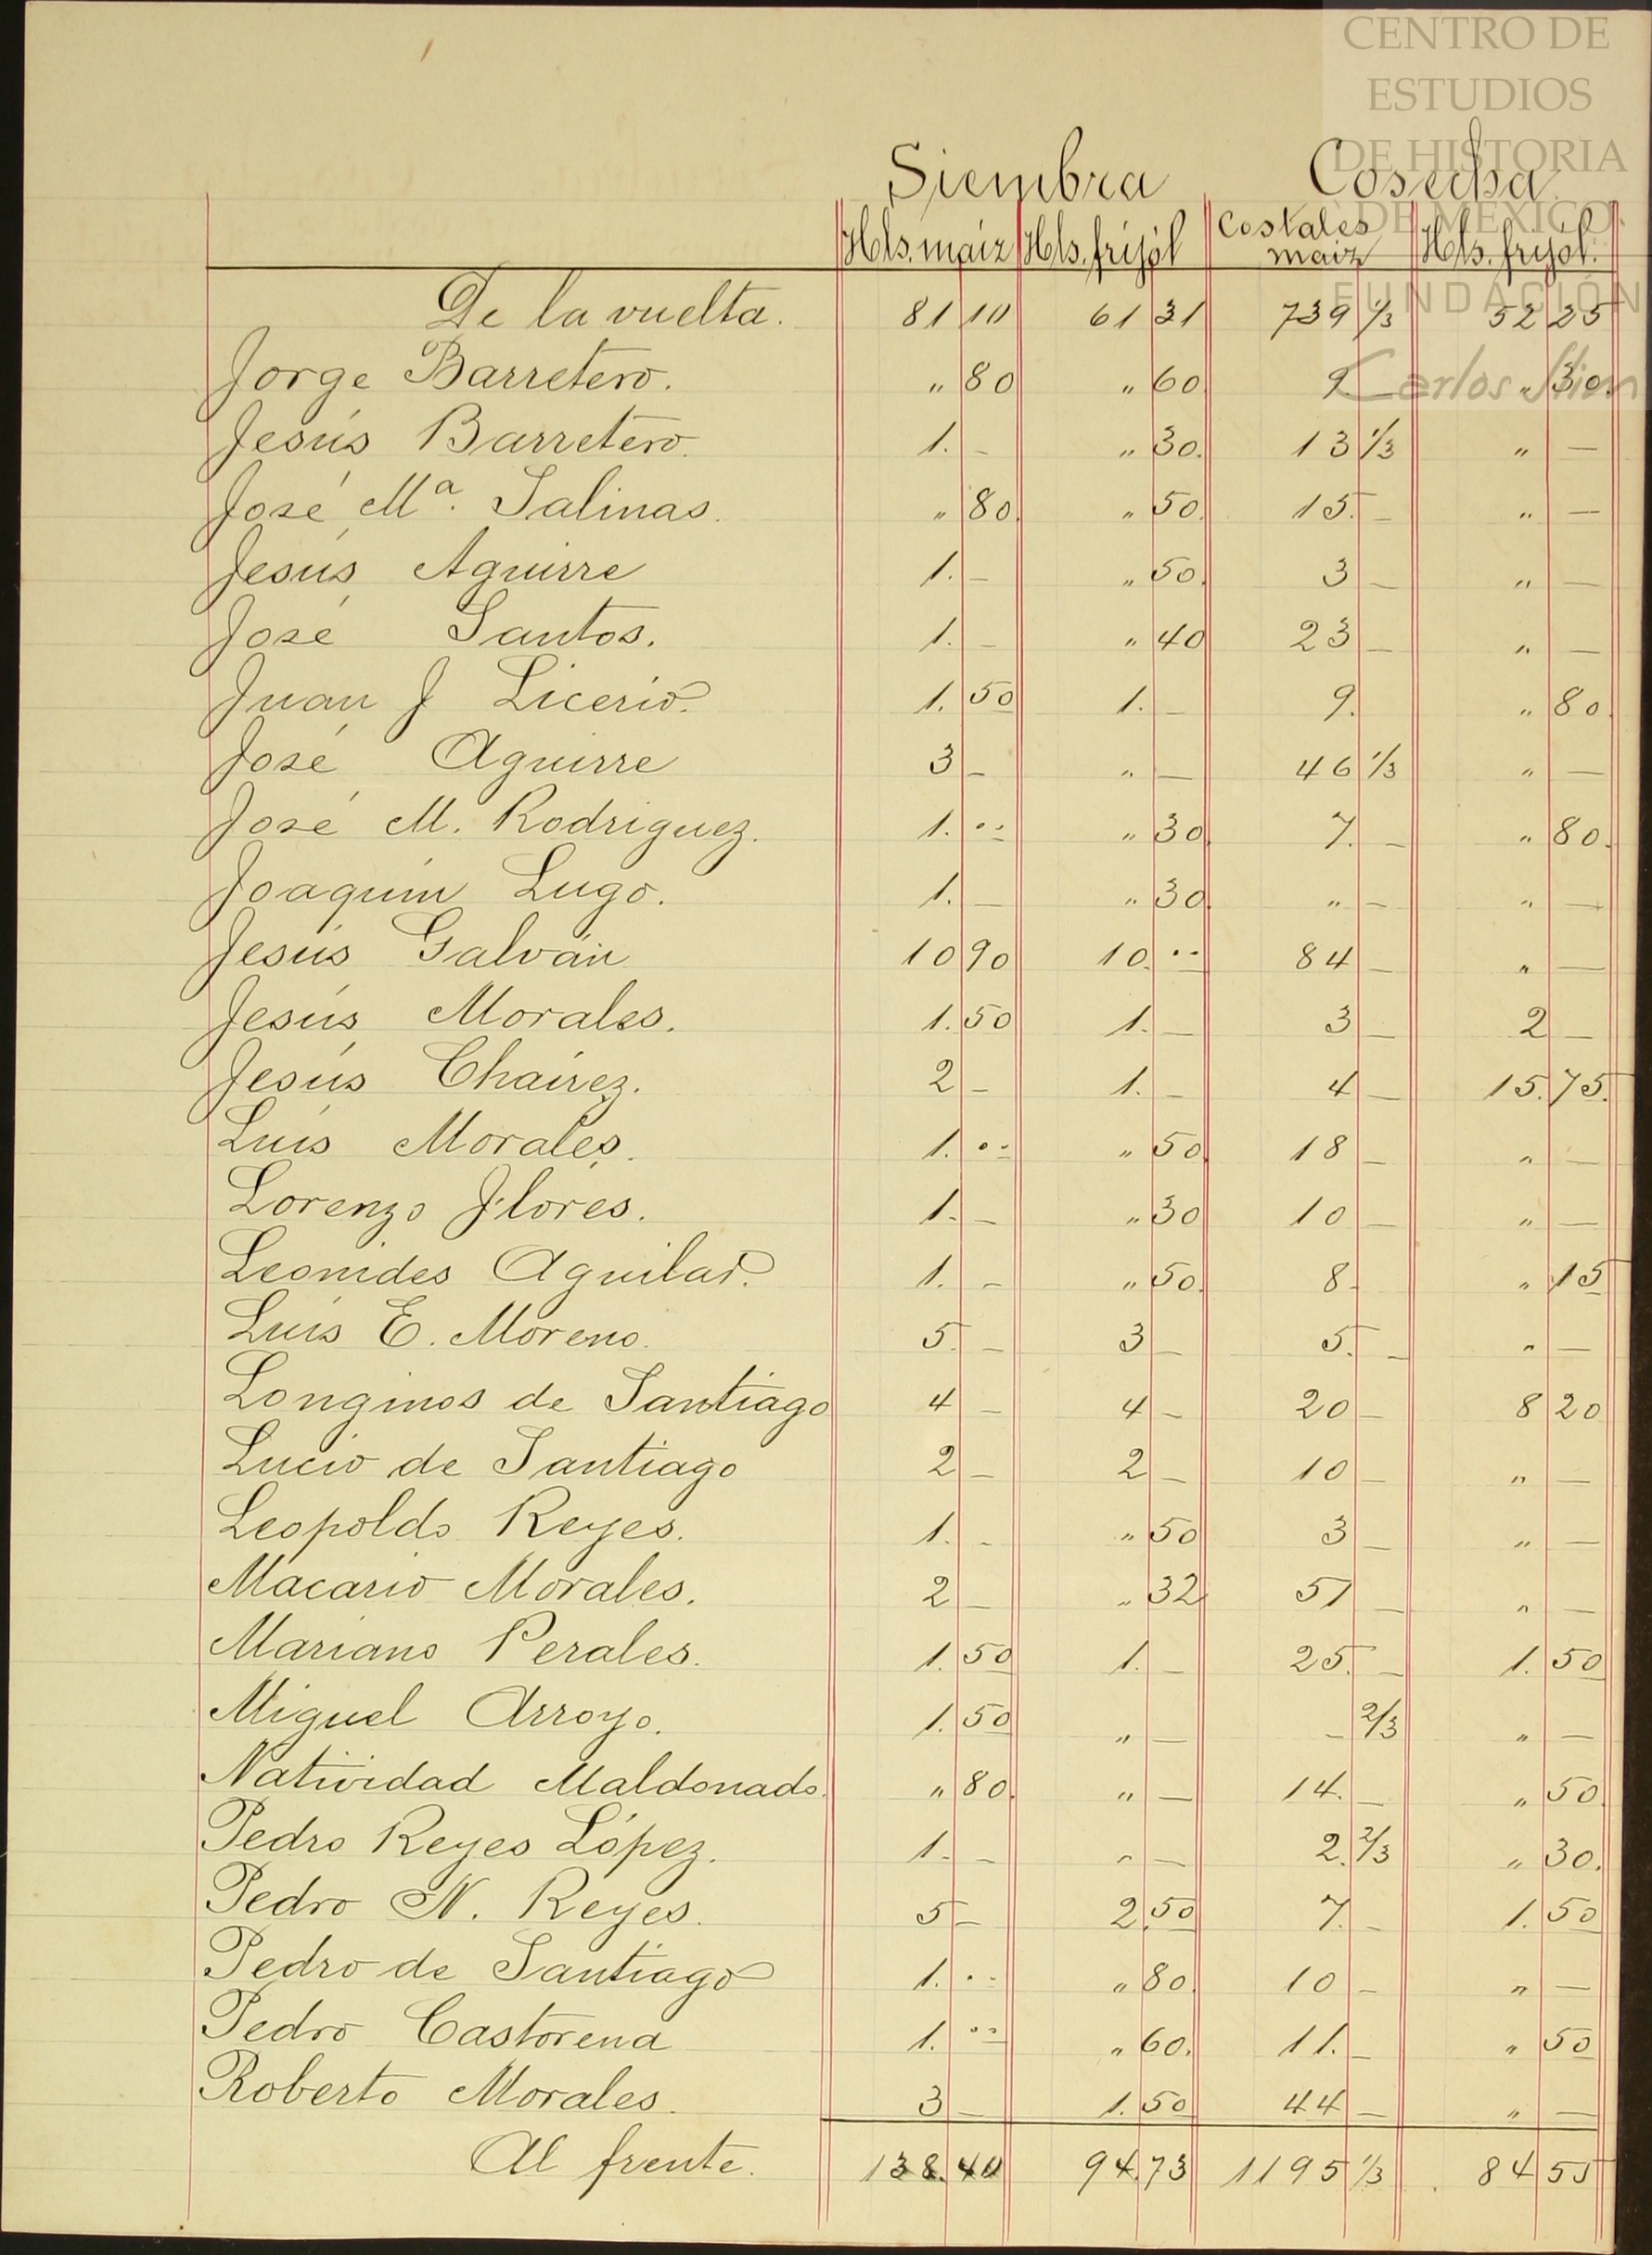 CENTRO DE
ESTUDIOS
DE HISTORIA
DE MEXICO
FUNDACIÓN
Siembra Cosecha
Hls. maiz Hls. frijól Costales maiz Hls. frijól.
De la vuelta. 81 10 61 31 739 1/3 52 25
Jorge Barretero. " 80 " 60. 9. — " 30.
Jesús Barretero. 1. — " 30. 13 1/3 " —
José Mª. Salinas. " 80. " 50. 15. — " —
Jesús Aguirre 1. — " 50. 3 — " —
José Santos. 1. — " 40 23 — " —
Juan J Licerio. 1. 50 1. — 9. " 80.
José Aguirre 3 — " — 46 1/3 " —
José M. Rodriguez. 1. .. " 30. 7. — " 80.
Joaquin Lugo. 1. — " 30. " — " —
Jesús Galván 10 90 10. .. 84 — " —
Jesús Morales. 1. 50 1. — 3 — 2 —
Jesús Cháirez. 2 — 1. — 4 — 15. 75.
Luis Morales. 1. .. " 50. 18 — " —
Lorenzo Flores. 1. — " 30 10 — " —
Leonides Aguilar. 1. — " 50. 8 — " 15
Luis E. Moreno. 5. — 3 — 5. — " —
Longinos de Santiago 4 — 4 — 20 — 8 20
Lucio de Santiago 2 — 2 — 10 — " —
Leopoldo Reyes. 1. — " 50 3 — " —
Macario Morales. 2 — " 32 51 — " —
Mariano Perales. 1. 50 1. — 25. — 1. 50
Miguel Arroyo. 1. 50 " — — 2/3 " —
Natividad Maldonado. " 80. " — 14. — " 50.
Pedro Reyes López. 1. — " — 2. 2/3 " 30.
Pedro N. Reyes. 5 — 2. 50 7. — 1. 50
Pedro de Santiago 1. .. " 80. 10 — " —
Pedro Castorena 1. .. " 60. 11. — " 50
Roberto Morales. 3 — 1. 50 44 — " —
Al frente. 138. 40 94. 73 1195 1/3 84 55